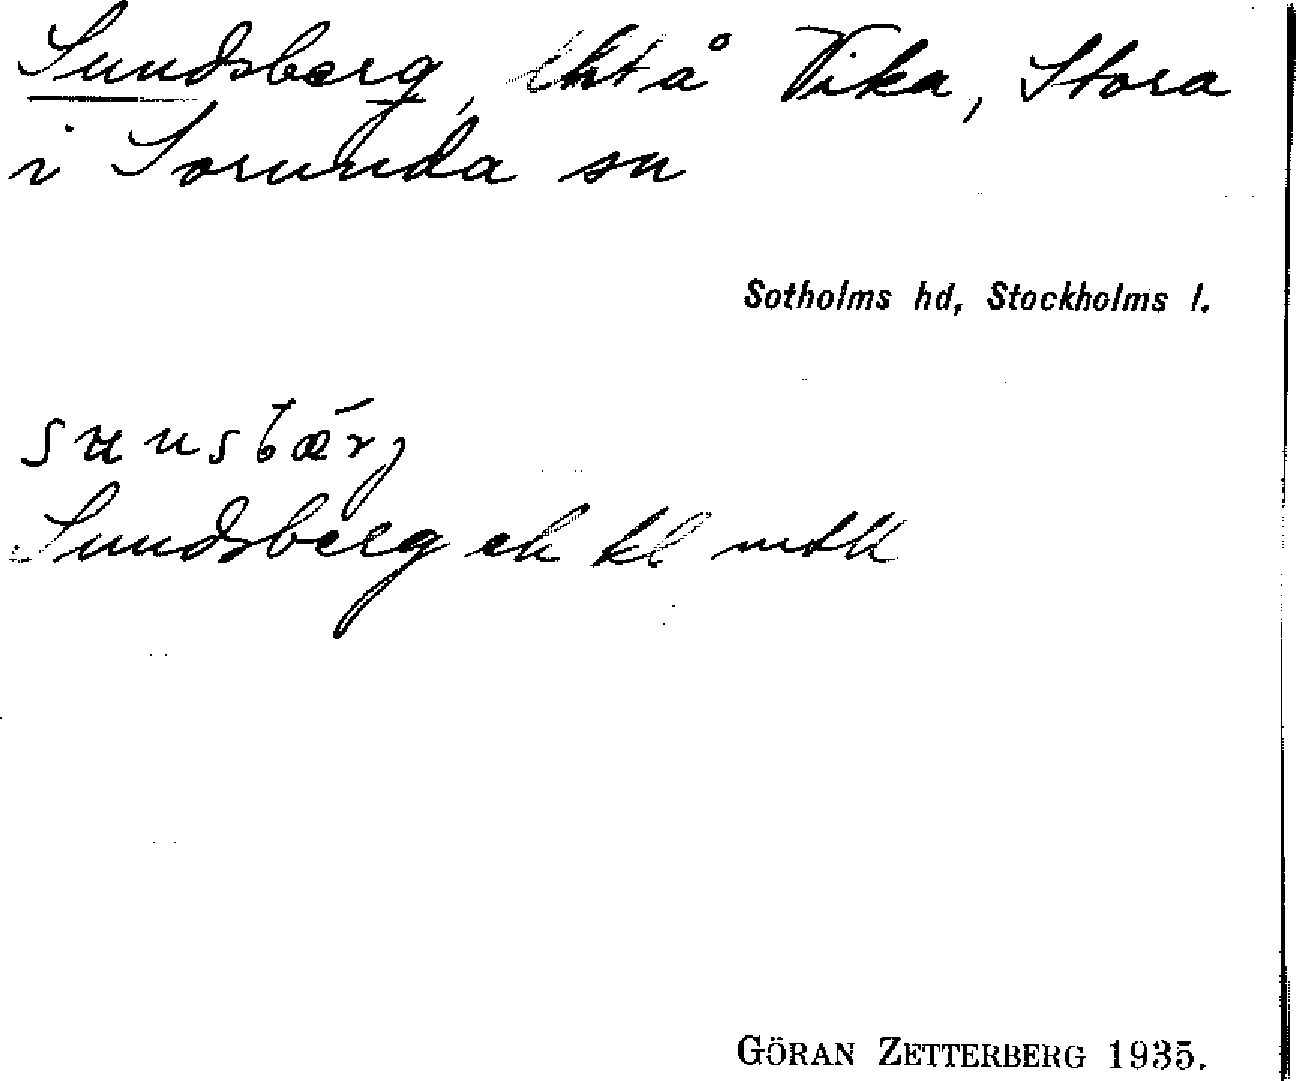 Sundsberg, lht å Vika, Stora
i Sorunda sn
Sotholms hd, Stockholms l.
Sundsberg ek kl mtk
GÖRAN ZETTERBERG 1935.